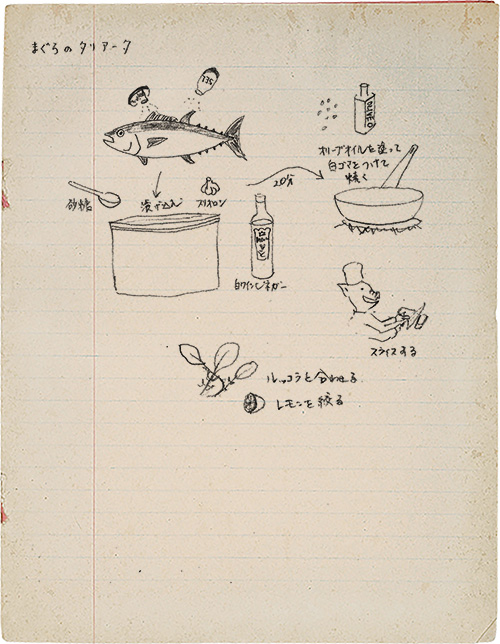 まぐろのタリアータ
SEL
OLIVE・O
オリーブオイルを塗って
白ゴマをつけて
焼く
20分
砂糖
漬け込み
白ワインビネガー
スライスする
ルッコラと合わせる
レモンを絞る